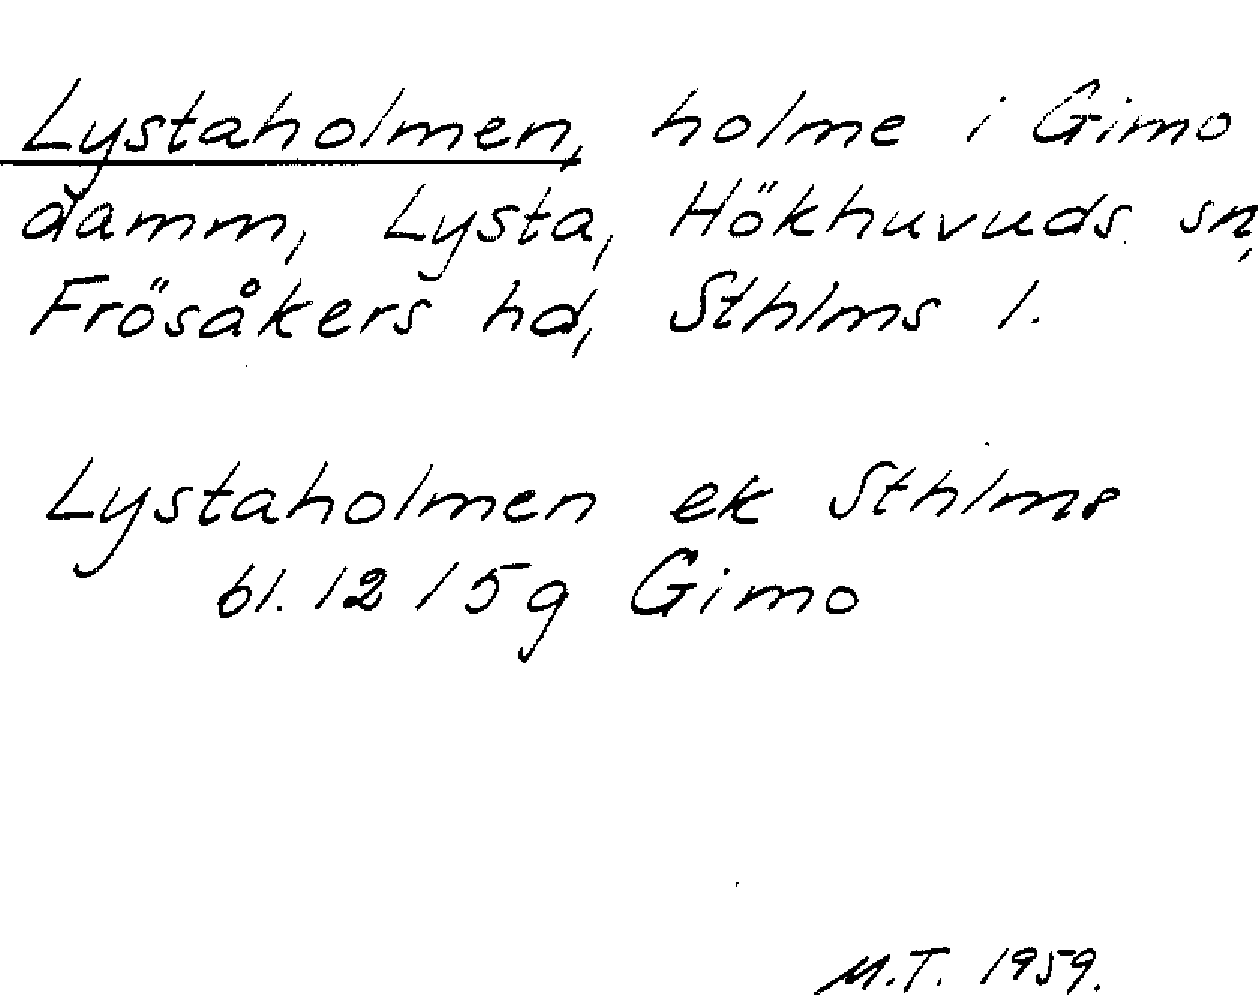 Lystaholmen, holme i Gimo
damm, Lysta, Hökhuvuds sn,
Frösåkers hd, Sthlms l.
Lystaholmen ek Sthlms
bl. 12 15g Gimo
M.T. 1959.